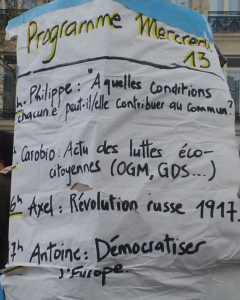 Programme Mercredi
13
h. Philippe : "A quelles conditions
chacun.e peut-il/elle contribuer au commun?
Carobio : Actu des luttes éco-
citoyennes (OGM, GDS...)
6h Axel : Révolution russe 1917
7h Antoine : Démocratiser
l'Europe